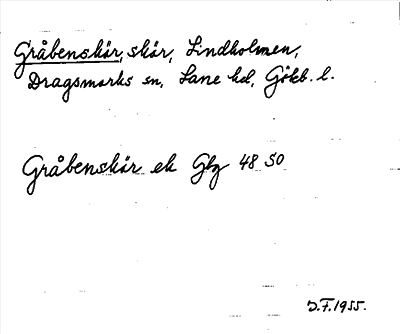 Gråbenskär, skär, Lindholmen,
Dragsmarks sn, Lane hd, Gökb. l.
Gråbenskär ek Gbg 48 SO
D.F. 1955.